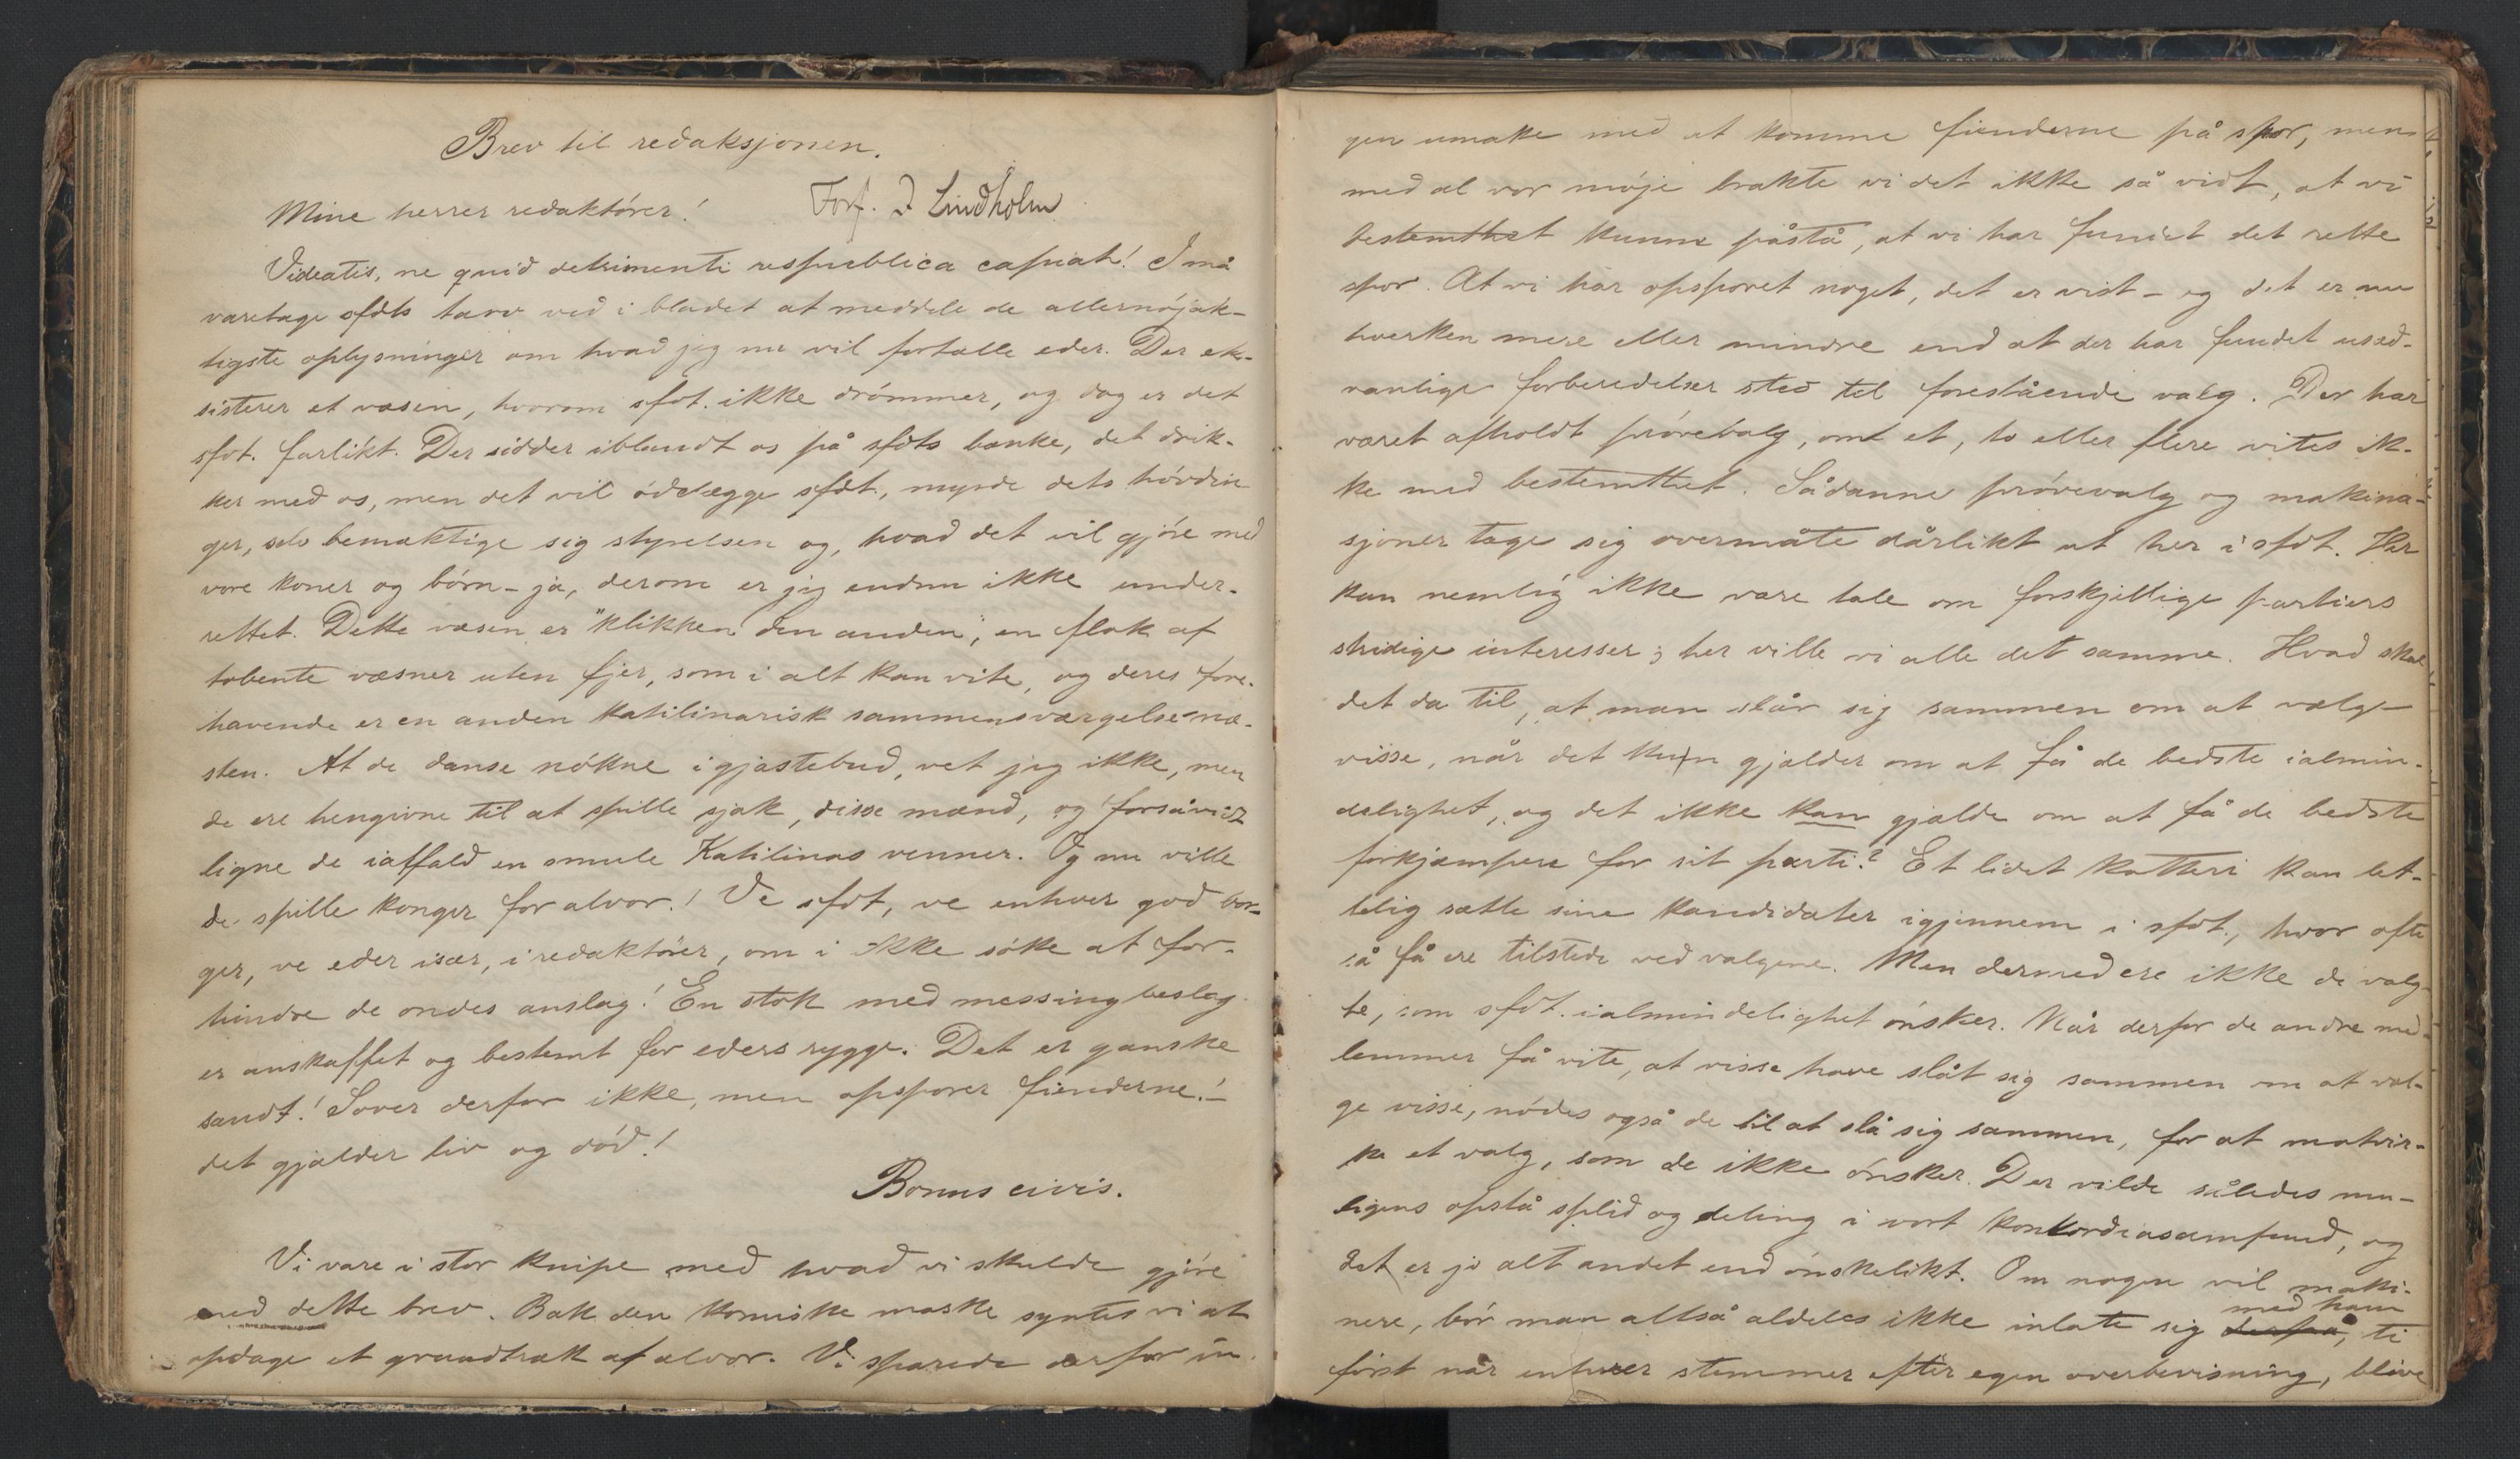 Brev til redaksjonen.
Mine herrer redaktörer! Forf. J Lindholm
Videatis, ne quid detrimenti respublica capiat! I må
varetage sfdts tarv ved i bladet at meddele de allernöjak-
tigste oplysninger om hvad jeg nu vil fortælle eder. Der ek-
sisterer et væsen, hvorom sfdt. ikke drömmer, og dog er det
sfdt. farlikt. Det sidder iblandt os på sfdts bænke, det drik-
ker med os, men det vil ödelægge sfdt., myrde dets hövdin
ger, selv bemæktige sig styrelsen og, hvad det vil gjöre med
vore koner og börn - ja, derom er jeg endnu ikke under-
rettet. Dette væsen er "klikken den anden", en flok af
tobente væsner uten fjer, som i alt kan vite, og deres fore-
havende er en anden katilinarisk sammensværgelse næ-
sten. At de danse nökne i gjæstebud, vet jeg ikke, men
de ere hengivne til at spille sjak, disse mænd, og forsåvidt
ligne de iaffald en smule Katilinas venner. Og nu ville
de spille konger for alvor! Ve sfdt, ve enhver god bor-
ger, ve eder især, i redaktörer, om i ikke söke at for-
hindre de ondes anslag! En stok med messingbeslag
er anskaffet og bestemt for eders rygge. Det er ganske
sandt! Sover derfor ikke, men opsporer fienderne! -
det gjælder liv og död!
Bonus civis.
Vi vare i stor knipe med hvad vi skulde gjöre
med dette brev. Bak den komiske maske syntes vi at
opdage et grundtræk af alvor. Vi sparede derfor in-
gen umake med at komme fienderne på spor, men
med al vor möje brakte vi det ikke så vidt, at vi
bestemthet kunne påstå, at vi har fundet det rette
spor. At vi har opsporet noget, det er vist - og det er nu
hverken mere eller mindre end at der har fundet usæd-
vanlige forberedelser sted til forestående valg. Der har
været afholdt prövevalg, om et, to eller flere vites ik-
ke med bestemthet. Sådanne prövevalg og makina-
sjoner tage sig overmåte dårlikt ut her i sfdt. Her
kan nemlig ikke være tale om forskjellige partiers
stridige interesser; her ville vi alle det samme. Hvad skal
det da til, at man slår sig sammen om at vælge
visse, når det kun gjælder om at få de bedste i almin-
delighet, og det ikke kan gjælde om at få de bedste
forkjæmpere for sit parti? Et lidet kotteri kan let-
telig sætte sine kandidater igjennem i sfdt., hvor ofte
så få ere tilstede ved valgene. Men dermed ere ikke de valg-
te, som sfdt. i almindelighet önsker. Når derfor de andre med-
lemmer få vite, at visse have slåt sig sammen om at væl-
ge visse, nödes også de til at slå sig sammen, for at motvir-
ke et valg, som de ikke önsker. Der vilde således mu-
ligens opstå splid og deling i vort konkordiasamfund, og
det er jo alt andet end önskelikt. Om nogen vil maki-
nere, bör man altså aldeles ikke inlate sig derpå, med ham ti
först når enhver stemmer efter egen overbevisning, blive